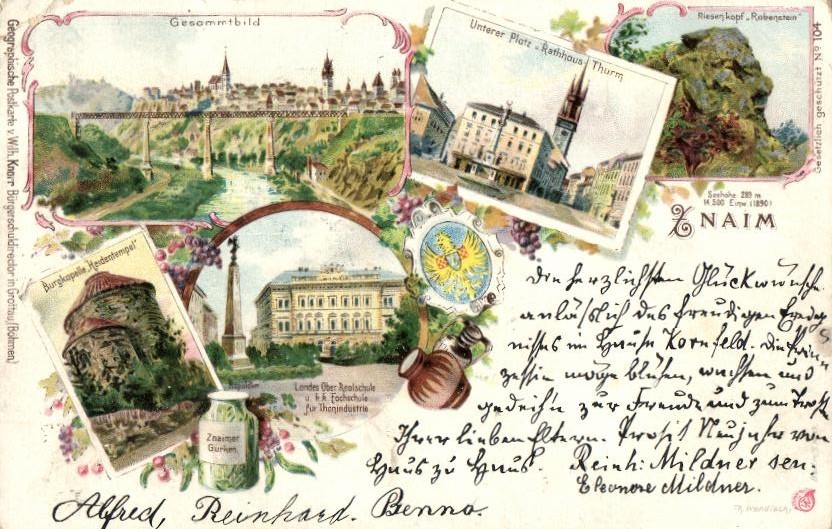 Gesammtbild
Unterer Platz u. Rathhaus Thurm
Riesenkopf „Rabenstein"
Geographische Postkarte v. Wilh. Knorr Bürgerschuldirector in Grottau (Böhmen)
Gesetzlich geschützt Nº 104
Seehöhe 289 m
14.500 Einw. (1890)
ZNAIM
Burgkapelle „Heidentempel"
Landes Ober Realschule
u. k.k. Fachschule
für Thonindustrie
Znaimer
Gurken.
Die herzlichsten Glückwünsche
anläßlich des freudigen Ereig-
nisses im Hause Kornfeld. Die Prin-
zessin möge blühen, wachsen und
gedeih'n zur Freude und zum Troste
Ihrer lieben Eltern. Prosit Neujahr von
Haus zu Haus. Reinh. Mildner sen.
Eleonore Mildner.
Alfred, Reinhard. Benno.